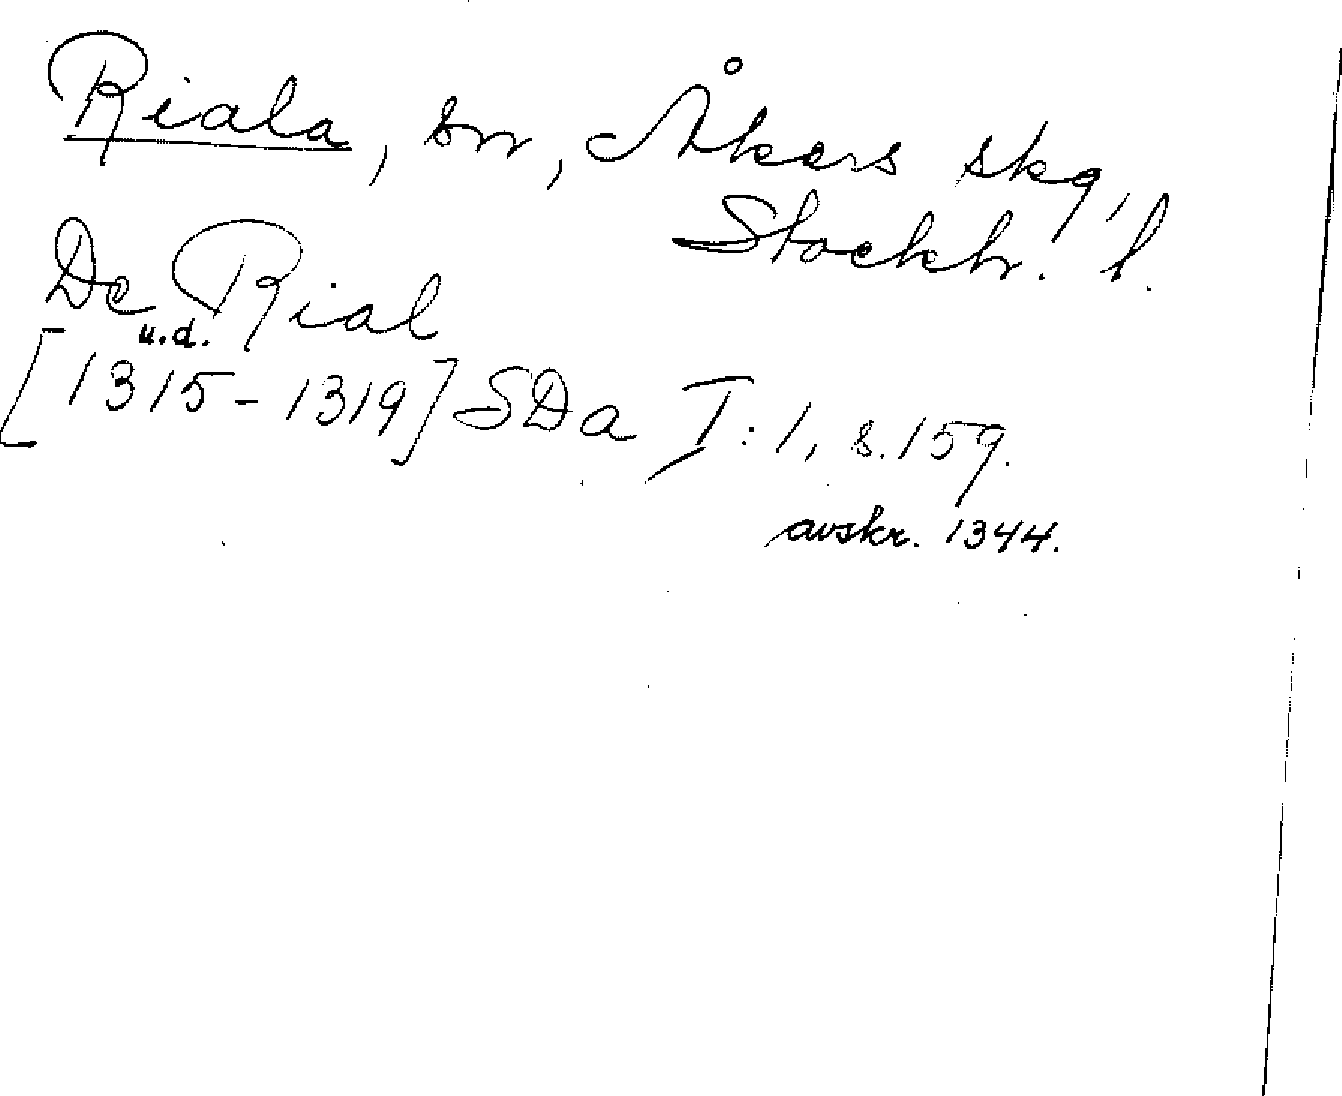 Riala, sn, Åkers skg,
Stockh. l.
De Rial
u.d.
[1315-1319] SDa I:1, s.159.
avskr. 1344.